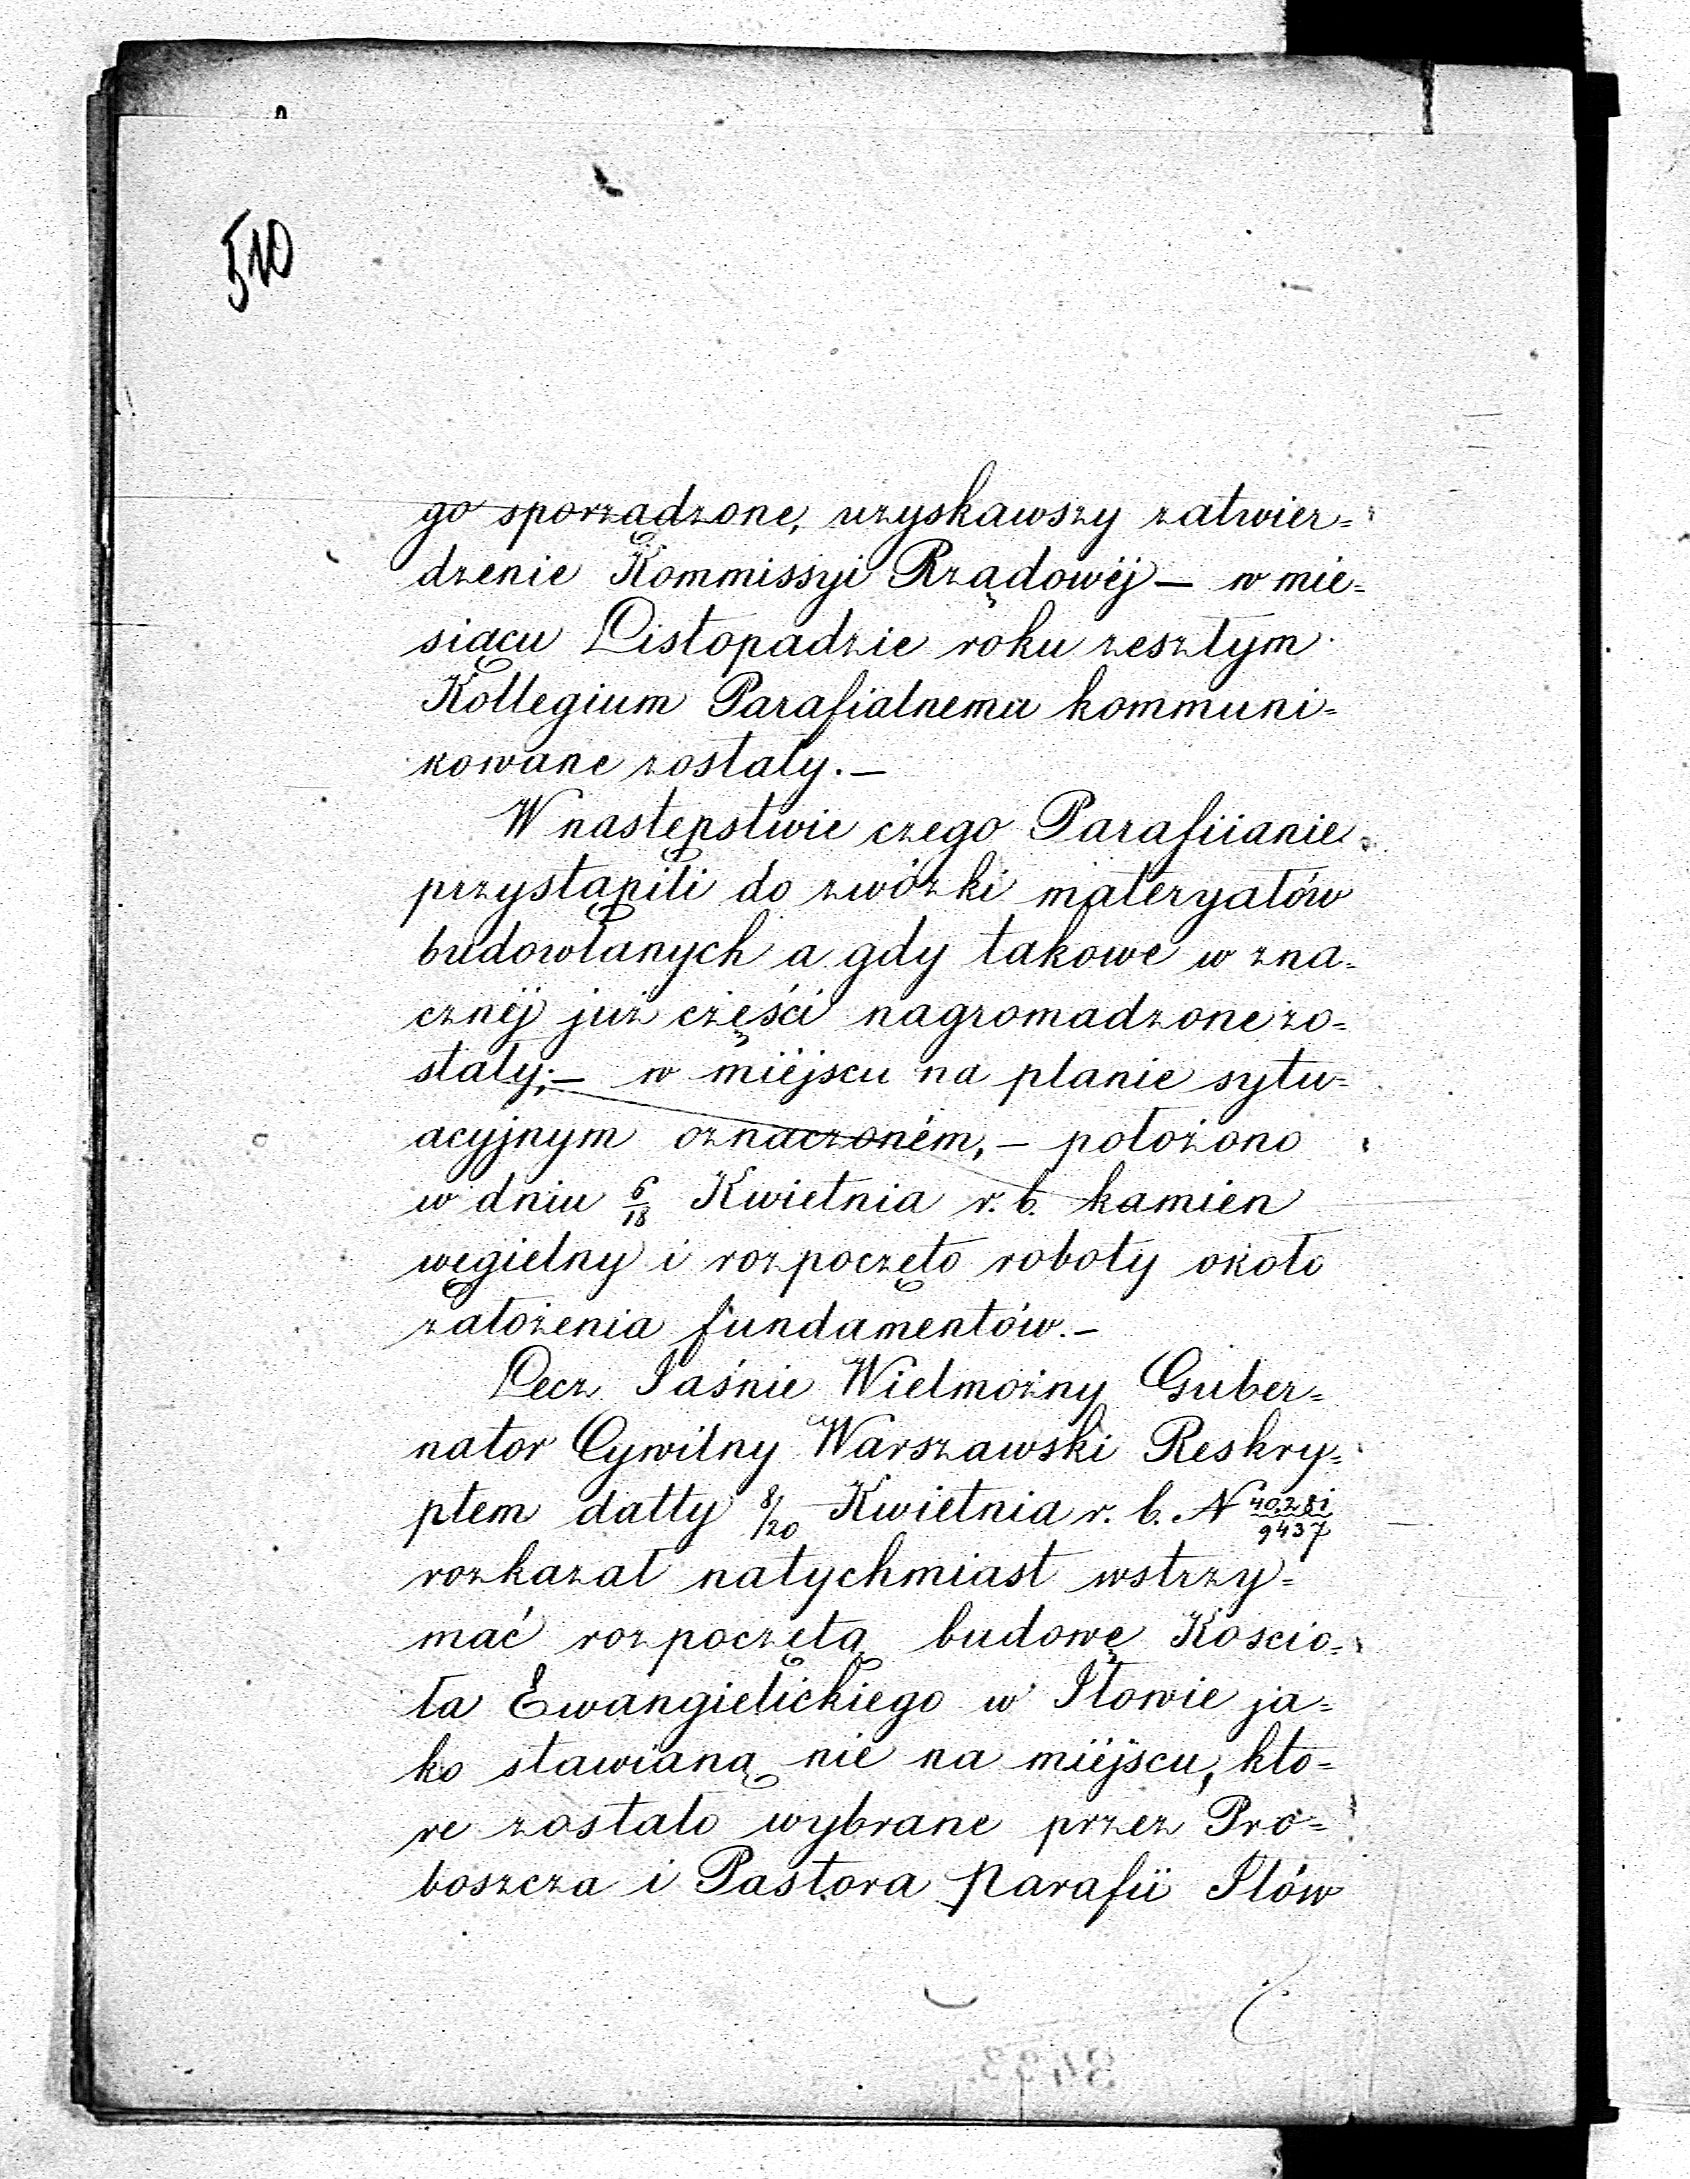 510
go sporządzone, uzyskawszy zatwier=
dzenie Kommissyi Rządowéj — w mie=
siącu Listopadzie roku zeszłym
Kollegium Parafialnemu kommuni=
kowane zostały. —
W następstwie czego Parafiianie
przystąpili do zwózki materyałów
budowlanych a gdy takowe w zna=
cznéj już części nagromadzone zo=
stały; — w miéjscu na planie sytu=
acyjnym oznaczoném, — położono
w dniu 6/18 Kwietnia r. b. kamień
węgielny i rozpoczęto roboty około
założenia fundamentów. —
Lecz Jaśnie Wielmożny Guber=
nator Cywilny Warszawski Reskry=
ptem datty 8/20 Kwietnia r. b. N 40281/9437
rozkazał natychmiast wstrzy=
mać rozpoczętą budowę Koscio=
ła Ewangielickiego w Iłowie ja=
ko stawianą nie na miéjscu, któ=
re zostało wybrane przez Pro=
boszcza i Pastora Parafii Iłów